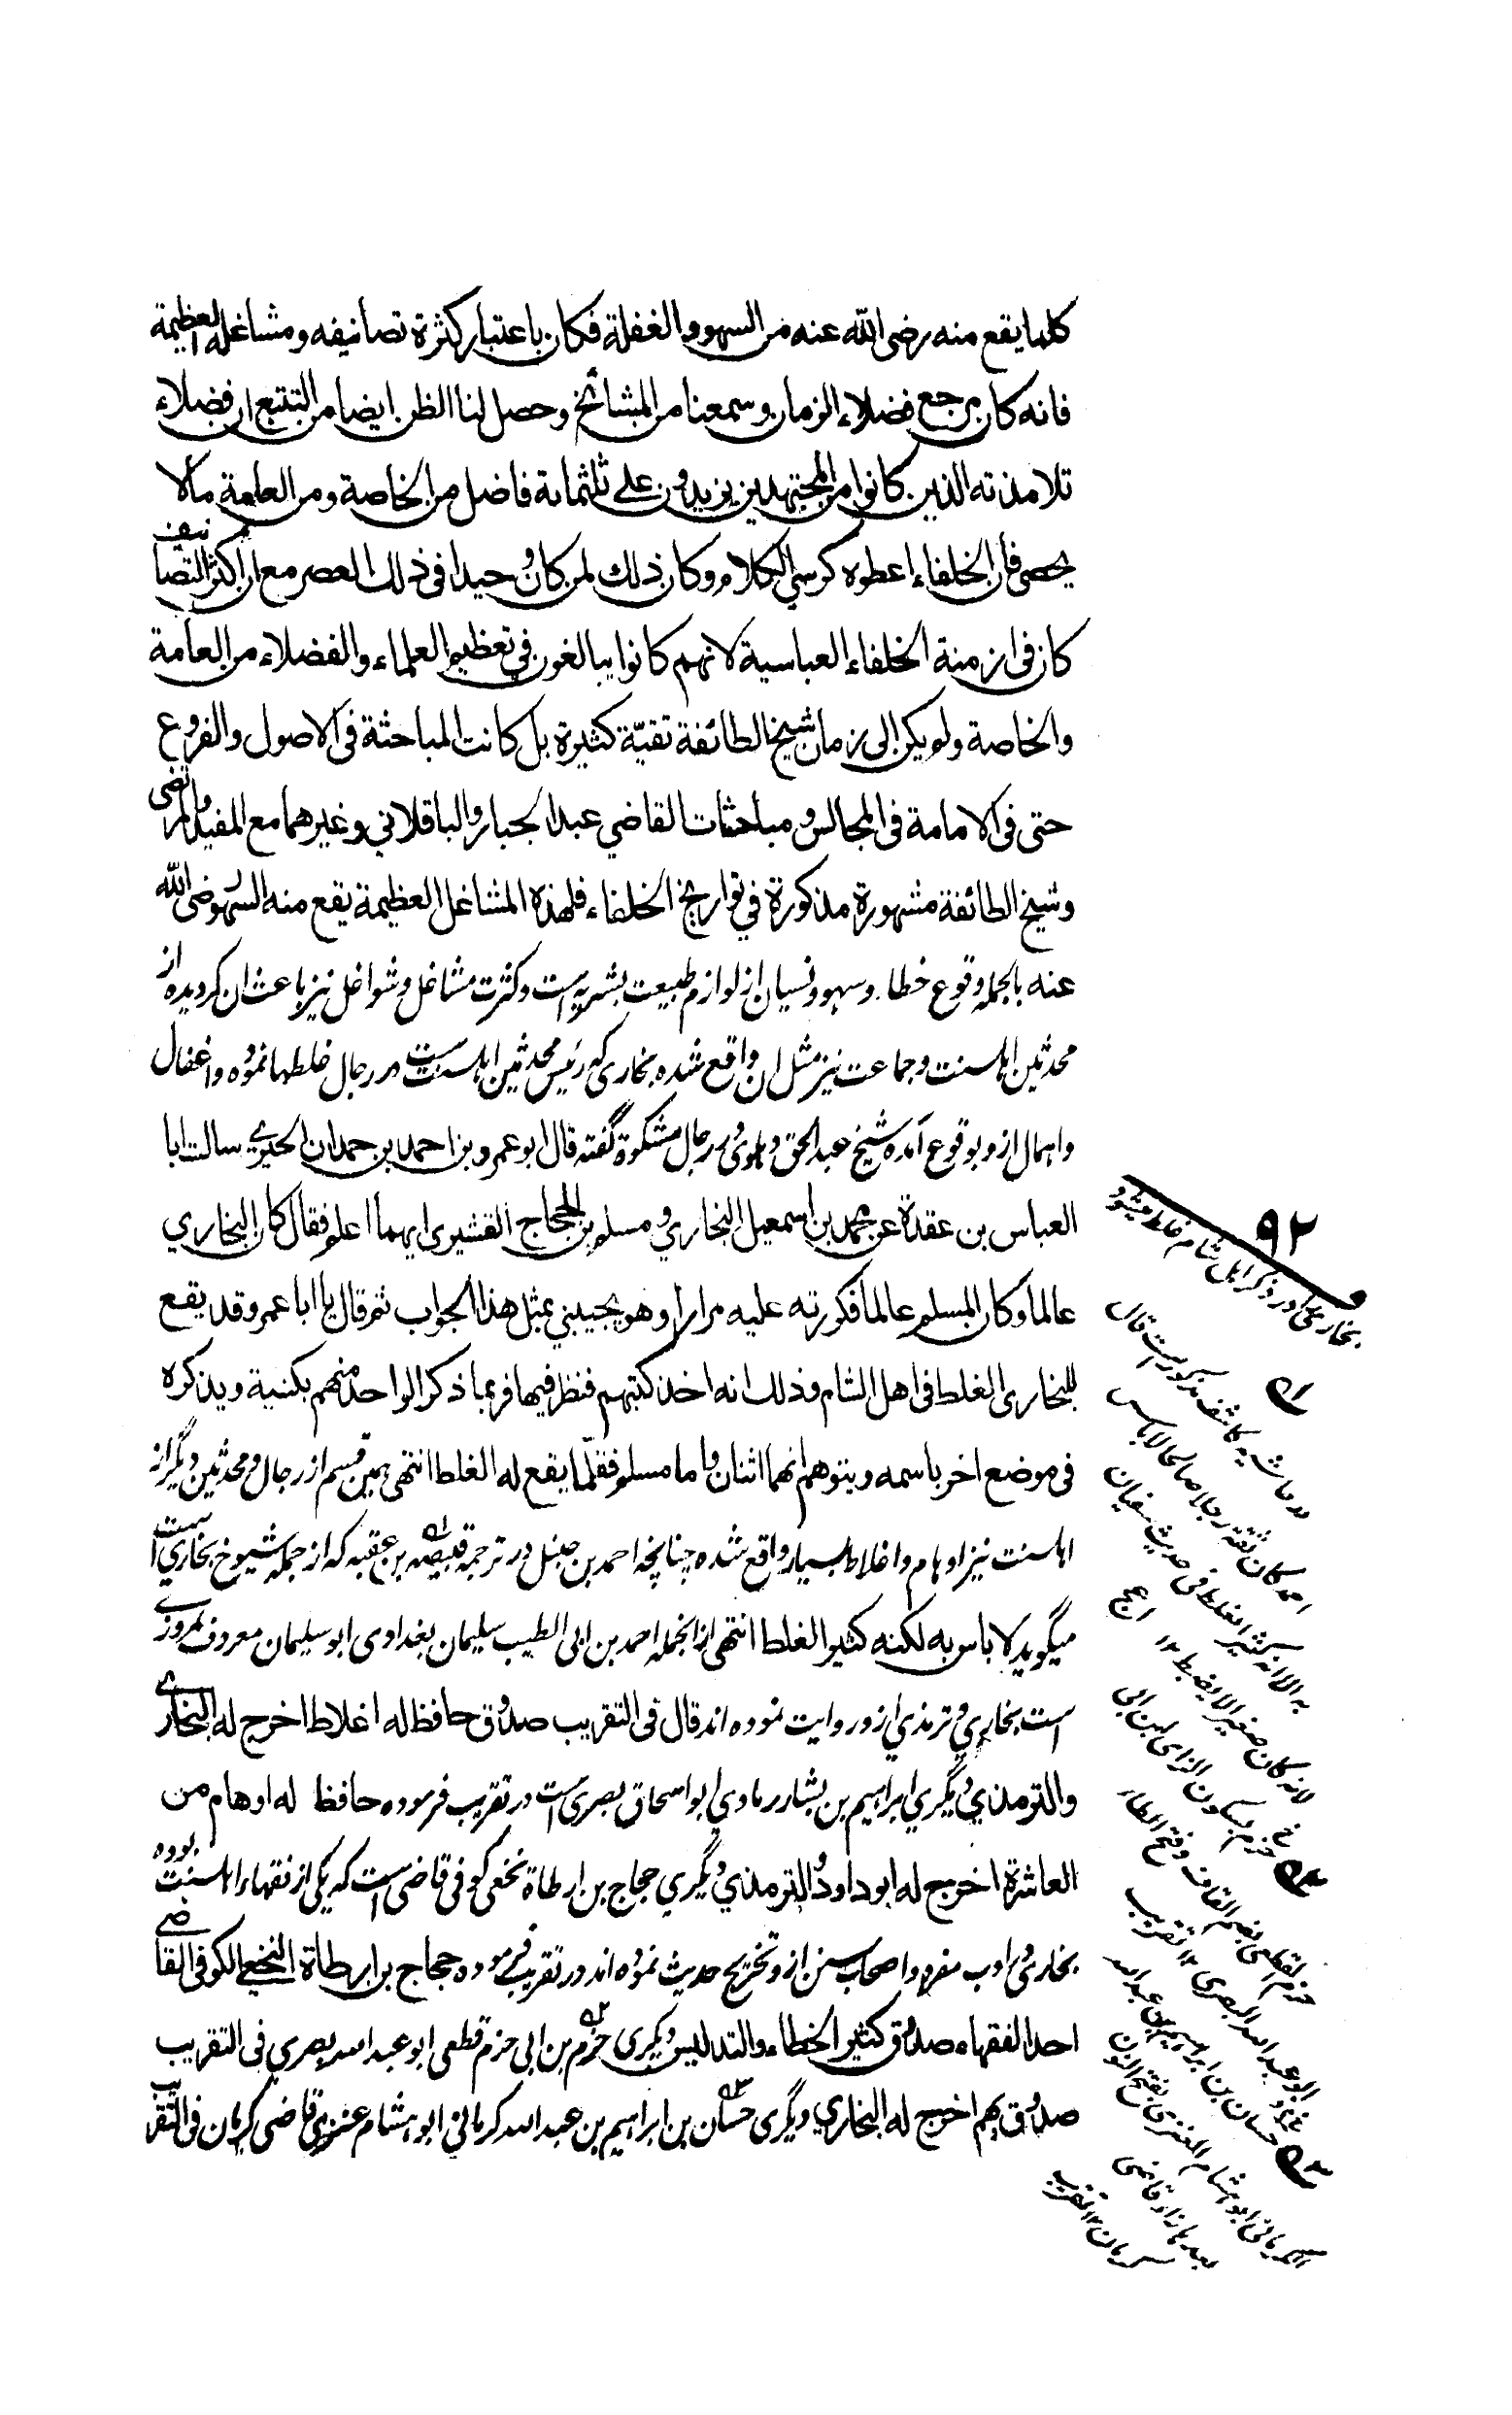 كلما يقع منه رضى الله عنه من السهو والغفلة فكان باعتبار كثرة تصانيفه ومشاغله العظيمة
فانه كان مرجع فضلاء الزمان وسمعنا من المشائخ وحصل لنا الظن ايضا من التتبع ان فضلاء
تلامذته الذين كانوا من المجتهدين يزيدون على ثلثمائة فاضل من الخاصة ومن العامة مالا
يحصى فان الخلفاء اعطوه كرسي الكلام وكان ذلك لمن كان وحيدا في ذلك العصر مع ان اكثر التصانيف
كان فى ازمنة الخلفاء العباسية لانهم كانوا يبالغون في تعظيم العلماء والفضلاء من العامة
والخاصة ولم يكن الى زمان شيخ الطائفة تقيّة كثيرة بل كانت المباحثة فى الاصول والفروع
حتى فى الامامة فى المجالس ومباحثات القاضي عبد الجبار والباقلاني وغيرهما مع المفيد والمرتضى
وشيخ الطائفة مشهورة مذكورة في تواريخ الخلفاء فلهذه المشاغل العظيمة يقع منه السهو رضى الله
عنه بالجمله وقوع خطاء وسهو ونسيان از لوازم طبيعت بشريه است وكثرت مشاغل وشواغل نيز باعث ان كرديده از
محدثين اهلسنت وجماعت نيز مثل ان واقع شده بخارى كه رئيس محدثين اهلسنت است در رجال غلطها نموده واغفال
واهمال ازو بوقوع آمده شيخ عبد الحق دهلوى در رجال مشكوة گفته قال ابو عمرو بن احمد بن حمدان الحيري سالت ابا
العباس بن عقدة عن محمد بن اسمعيل البخاري ومسلم بن الحجاج القشيرى ايهما اعلم فقال كان البخاري
عالما وكان المسلم عالما فكررته عليه مرارا وهو يجيبني بمثل هذا الجواب ثم قال يا ابا عمرو قد يقع
للبخارى الغلط فى اهل الشام وذلك انه اخذ كتبهم فنظر فيها فربما ذكر الواحد منهم بكنية ويذكره
فى موضع اخر باسمه ويتوهم انهما اثنان واما مسلم فقلّما يقع له الغلط انتهى همين قسم از رجال ومحدثين ديگر از
اهلسنت نيز اوهام واغلاط بسيار واقع شده چنانچه احمد بن حنبل در ترجمه قبيصه بن عقبه كه از جمله شيوخ بخاري است
ميگويد لا باس به لكنه كثير الغلط انتهى از انجمله احمد بن ابى الطيب سليمان بغدادى ابو سليمان معروف بمروزى
است بخاري وترمذي ازو روايت نموده اند قال فى التقريب صدوق حافظ له اغلاط اخرج له البخارى
والترمذي ديگري ابراهيم بن بشار رمادي ابو اسحاق بصرى است در تقريب فرموده حافظ له اوهام من
العاشرة اخرج له ابوداود والترمذي ديگري حجاج بن ارطاة نخعى كوفى قاضى است كه يكى از فقهاء اهلسنت بوده
بخارى در ادب مفرد واصحاب سنن ازو تخريج حديث نموده اند در تقريب فرموده حجاج بن ارطاة النخعي الكوفى القاضى
احد الفقهاء صدوق كثير الخطاء والتدليس ديگرى حزم بن ابى حزم قطعى ابو عبد الله بصري فى التقريب
صدوق يهم اخرج له البخاري ديگرى حسان بن ابراهيم بن عبدالله كرماني ابو هشام عنزي قاضى كرمان فى التقريب
٩٢
بخارى در ذكر اهل شام غلط ميشود
در حاشيه كاشف مذكورست قال
احمد كان ثقة رجلا صالحا لاباس
به الا انه كثير الغلط فى حديث سفيان
لانه كان صغيرا لا يضبط ١٢
حزم بسكون الزاى ابن ابى
حزم القطعى بضم القاف وفتح الطاء
ابو عبد الله البصرى ١٢ تقريب
حسان بن ابراهيم بن عبد الله
الكرمانى ابو هشام العنزى بفتح النون
بعدها زاء قاضى
كرمان ١٢ تقريب